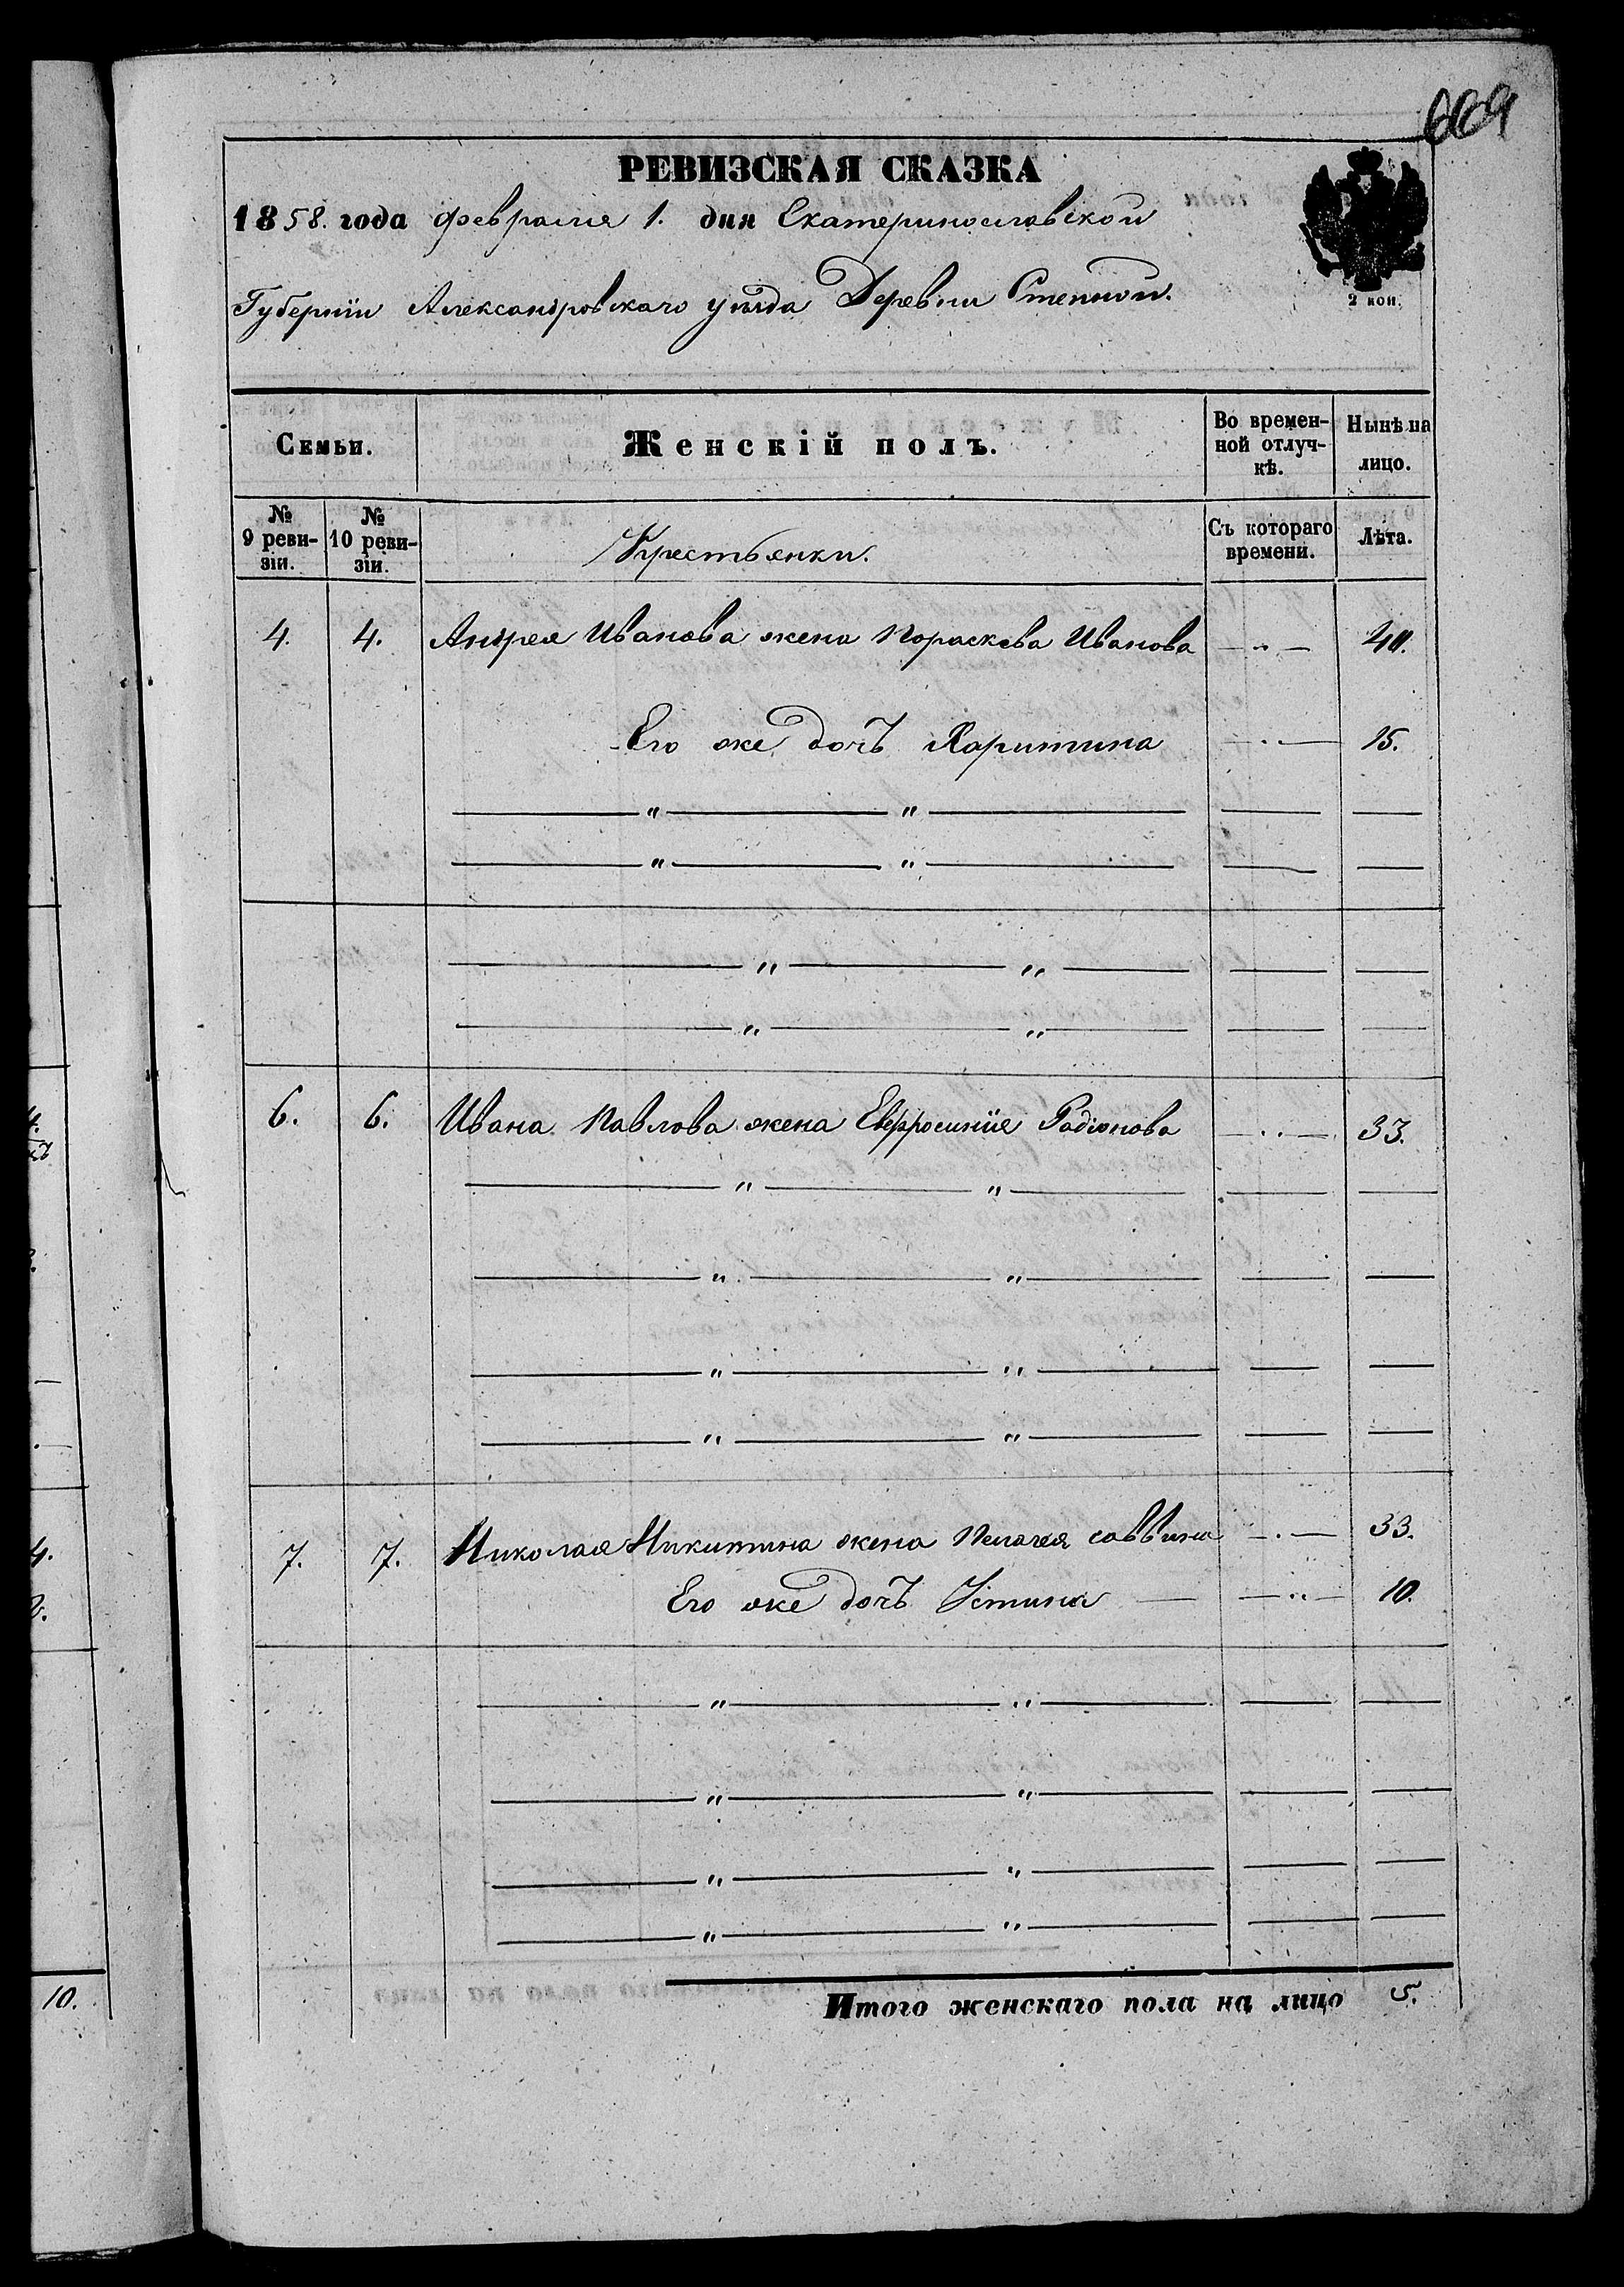 669
РЕВИЗСКАЯ СКАЗКА
1858. года февраля 1. дня Екатеринославской
Губернiи Александровскаго уѣзда Деревни Степной.
2 коп.
Семьи.
Женскiй полъ.
Во времен-
ной отлуч-
кѣ.
Нынѣ на
лицо.
№
9 реви-
зiи.
№
10 реви-
зiи.
Крестьянки.
Съ котораго
времени.
Лѣта.
4. 4. Андрея Иванова жена Пораскева Иванова —„—
Его же дочь Харитина —„— 15.
— „ — „ — — —
— „ — „ — — —
— „ — „ — — —
— „ — „ — — —
6. 6. Ивана Павлова жена Евфросинiя Радiонова —„— 33.
— „ — „ — — —
— „ — „ — — —
— „ — „ — — —
— „ — „ — — —
7. 7. Николая Никитина жена Пелагея Саввина —„— 33.
Его же дочь Устина — —„— 10.
— „ — „ — — —
— „ — „ — — —
— „ — „ — — —
— „ — „ — — —
Итого женскаго пола на лицо 5.
10.